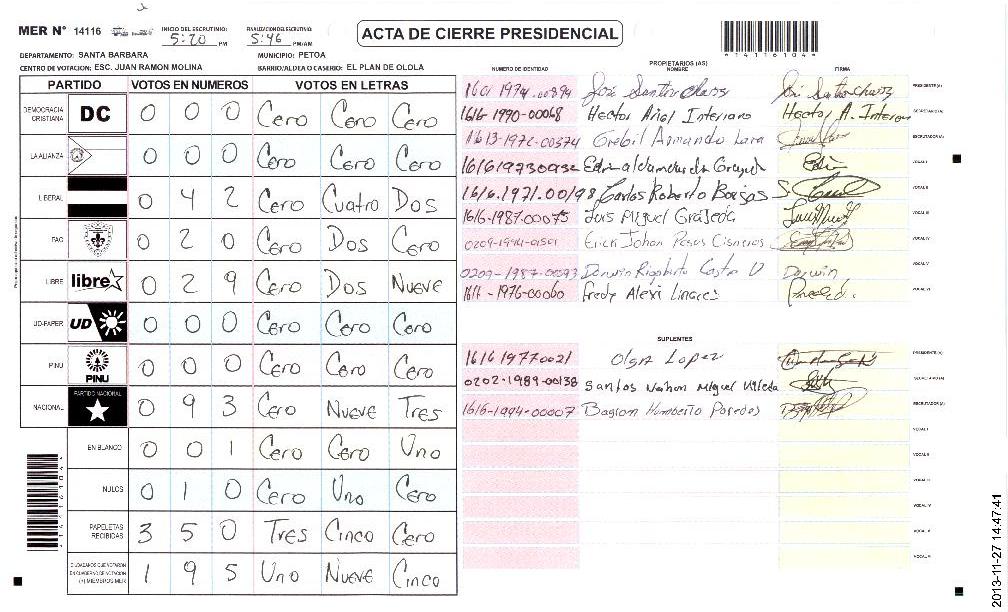 MER Nº 14116 INICIO DEL ESCRUTINIO: 5:20 PM FINALIZACION DEL ESCRUTINIO: 5:46 PM/AM
ACTA DE CIERRE PRESIDENCIAL
*14116104*
DEPARTAMENTO: SANTA BARBARA MUNICIPIO: PETOA
CENTRO DE VOTACION: ESC. JUAN RAMON MOLINA BARRIO/ALDEA O CASERIO: EL PLAN DE OLOLA
PARTIDO VOTOS EN NUMEROS VOTOS EN LETRAS
DEMOCRACIA CRISTIANA DC 0 0 0 Cero Cero Cero
LA ALIANZA 0 0 0 Cero Cero Cero
LIBERAL 0 4 2 Cero Cuatro Dos
PAC 0 2 0 Cero Dos Cero
LIBRE libre 0 2 9 Cero Dos Nueve
UD-FAPER UD 0 0 0 Cero Cero Cero
PINU PINU 0 0 0 Cero Cero Cero
NACIONAL PARTIDO NACIONAL 0 9 3 Cero Nueve Tres
EN BLANCO 0 0 1 Cero Cero Uno
NULOS 0 1 0 Cero Uno Cero
PAPELETAS RECIBIDAS 3 5 0 Tres Cinco Cero
CIUDADANOS QUE VOTARON EN CUADERNO DE VOTACION (+) MIEMBROS MER 1 9 5 Uno Nueve Cinco
PROPIETARIOS (AS)
NUMERO DE IDENTIDAD NOMBRE FIRMA
1601 1974-00894 José Santos PRESIDENTE(A)
1616-1990-00068 Hector Ariel Interiano Hector A. Interiano SECRETARIO(A)
1613-1972-00374 Armando Lara ESCRUTADOR(A)
VOCAL I
1616.1971.00198 Carlos Roberto Borjas S. VOCAL II
1616-1987-00075 Luis Miguel Grajeda VOCAL III
Erick Johan Posas Cisneros VOCAL IV
0209-1987-00593 Darwin Rigoberto Castro Darwin VOCAL V
1611-1976-00060 Fredy Alexi Linares VOCAL VI
SUPLENTES
1616 1977 0021 Olga Lopez PRESIDENTE(A)
0202-1989-00138 Santos Nahon Miguel SECRETARIO(A)
1616-1994-00007 Humberto Paredes ESCRUTADOR(A)
VOCAL I
VOCAL II
VOCAL III
VOCAL IV
VOCAL V
VOCAL VI
2013-11-27 14:47:41